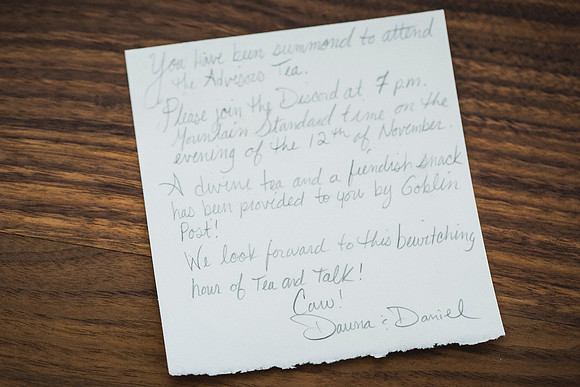 You have been summond to attend
the Advisors Tea.
Please join the Discord at 7 p.m.
Mountain Standard time on the
evening of the 12th of November.
A divine tea and a fiendish snack
has been provided to you by Goblin
Post!
We look forward to this bewitching
hour of Tea and Talk!
Caw!
Dawna & Daniel